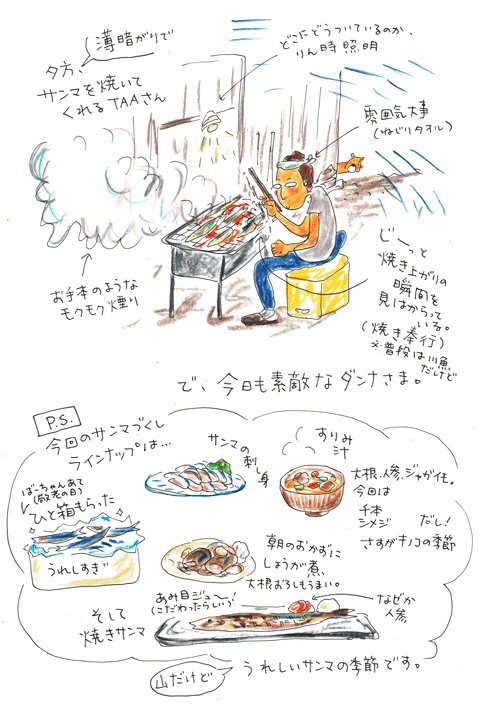 夕方、
薄暗がりで
サンマを焼いて
くれるTAAさん
どこにどうついているのか、
りん時照明
雰囲気大事
(ねじりタオル)
お手本のような
モクモク煙り
じーっと
焼き上がりの
瞬間を
見はからって
いる。
(焼き奉行)
※普段は川魚
だけど
で、今日も素敵なダンナさま。
P.S.
今回のサンマづくし
ラインナップは…
ばーちゃんあて
(敬老の日)
ひと箱もらった
うれしすぎ
サンマの
刺し
身
すりみ
汁
大根、人参、ジャガイモ。
今回は
千本
シメジ
だし!
さすがキノコの季節
朝のおかずに
しょうが煮、
大根おろしもうまい。
そして
焼きサンマ
あみ目ジュ〜
(こだわったらしい)
なぜか
人参
山だけど
うれしいサンマの季節です。